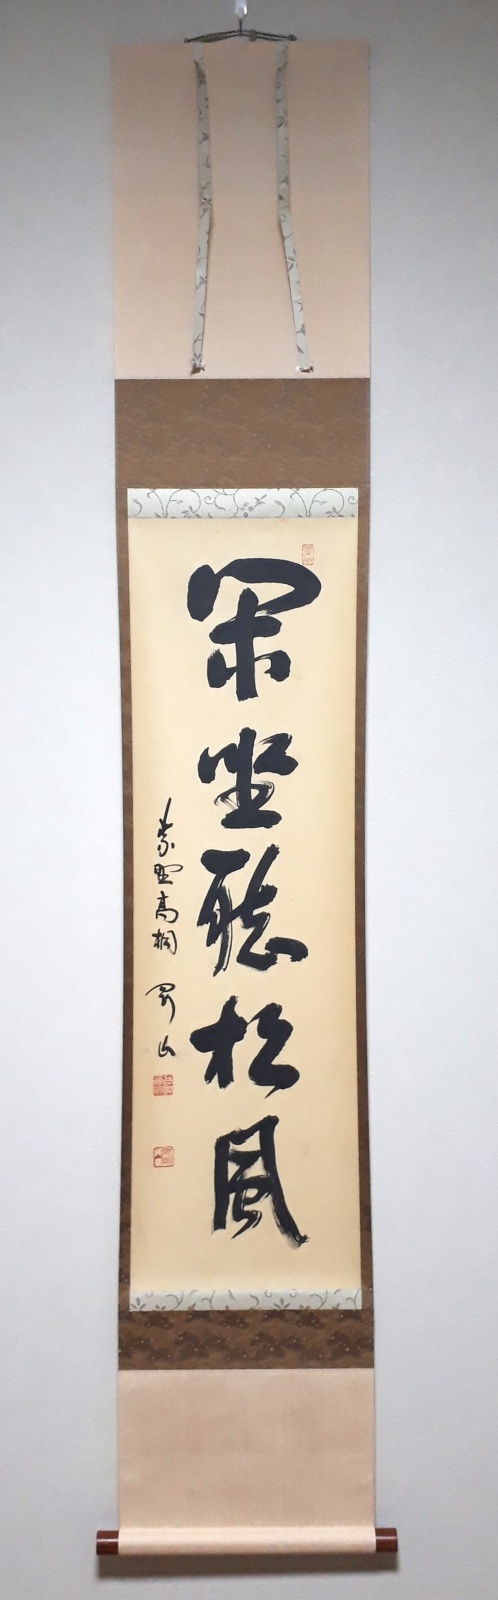 閑坐聴松風
紫野高桐 昇山